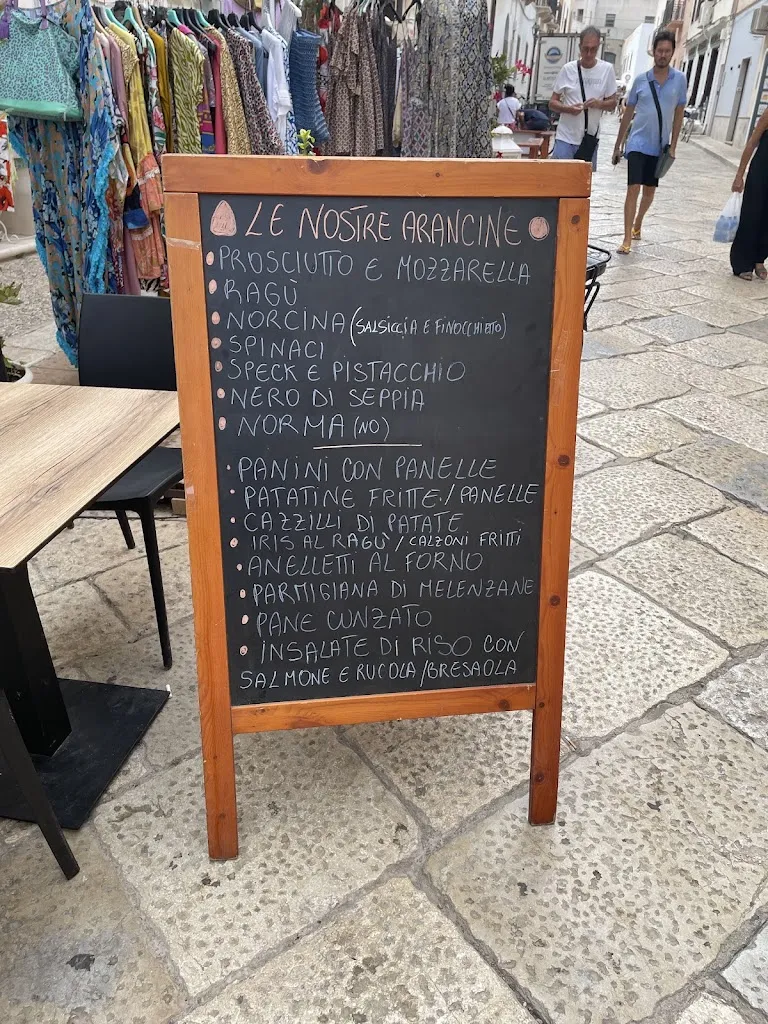 LE NOSTRE ARANCINE
PROSCIUTTO E MOZZARELLA
RAGÙ
NORCINA (SALSICCIA E FINOCCHIETTO)
SPINACI
SPECK E PISTACCHIO
NERO DI SEPPIA
NORMA (NO)
PANINI CON PANELLE
PATATINE FRITTE / PANELLE
CAZZILLI DI PATATE
IRIS AL RAGÙ / CALZONI FRITTI
ANELLETTI AL FORNO
PARMIGIANA DI MELENZANE
PANE CUNZATO
INSALATE DI RISO CON
SALMONE E RUCOLA / BRESAOLA